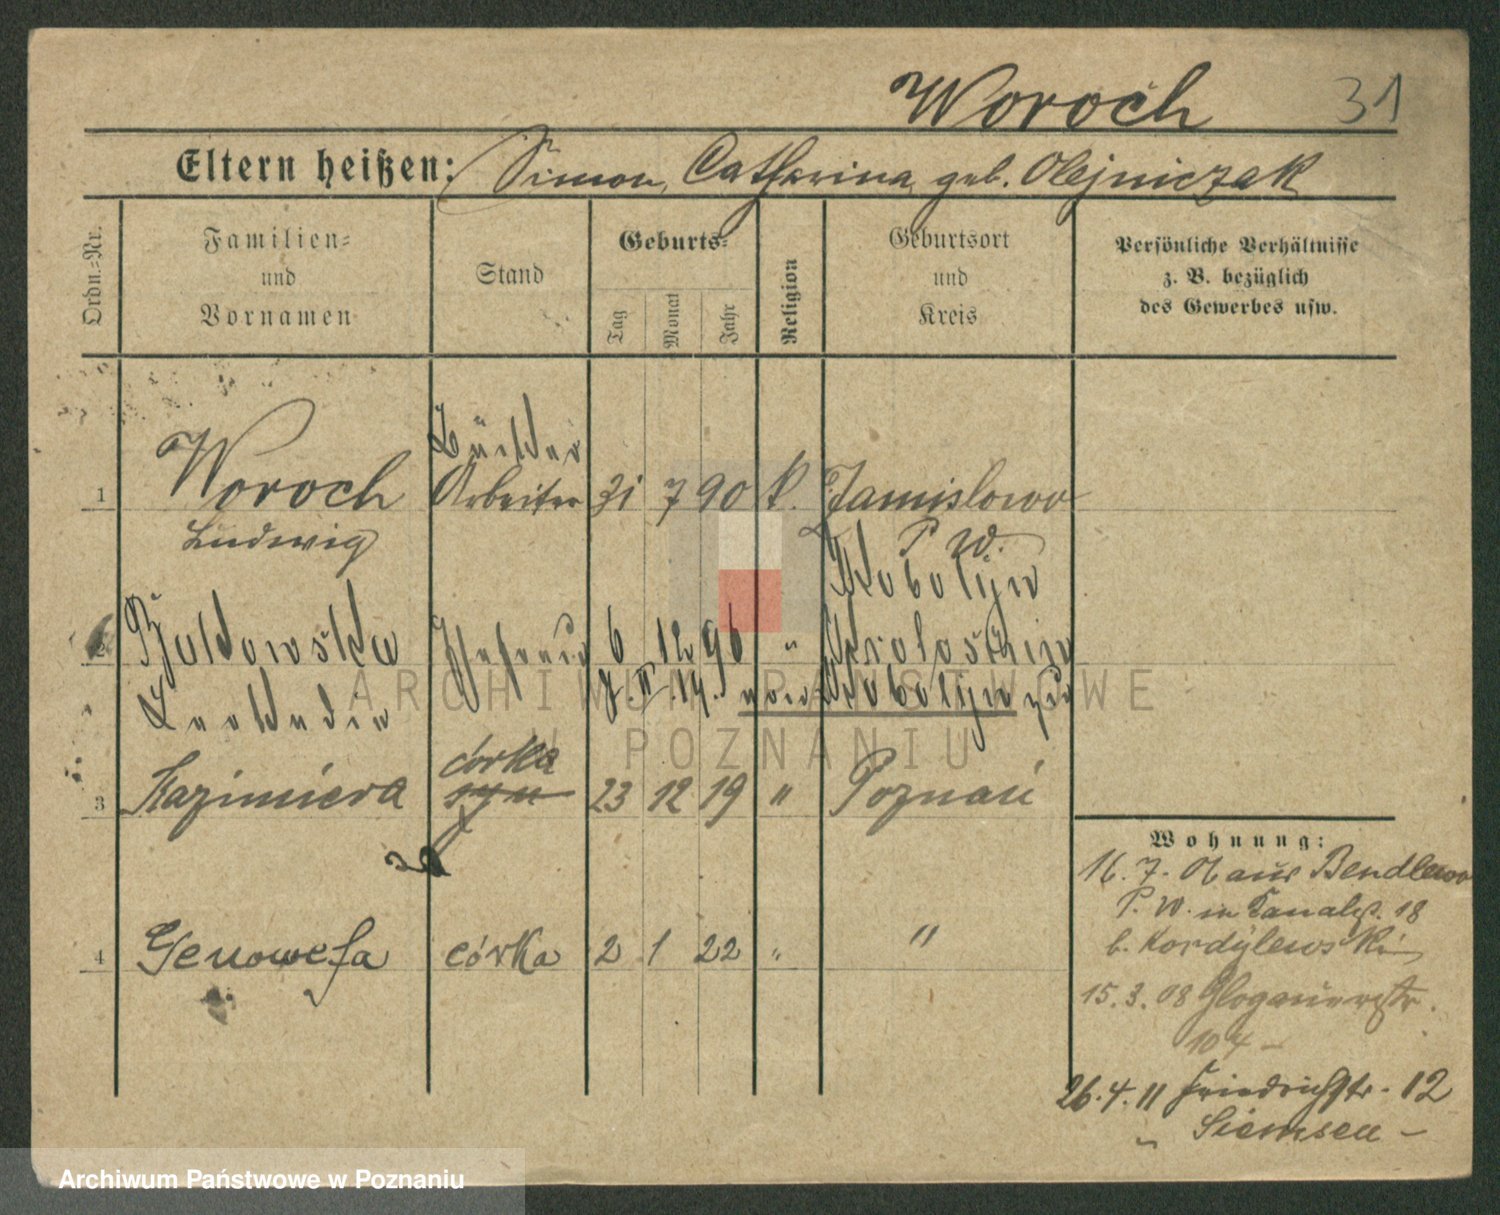 Woroch 31
Eltern heißen: Simon, Catharina geb. Olejniczak
Ordn.-Nr.
Familien-
und
Vornamen
Stand
Geburts-
Tag
Monat
Jahr
Religion
Geburtsort
und
Kreis
Persönliche Verhältnisse
z. B. bezüglich
des Gewerbes usw.
Arbeiter
1 Woroch 31 7 90 k. Jamislowo
Ludwig P. W.
Kobylin
2 6 12 96 "
Leokadia
córka
3 Kazimiera syn 23 12 19 " Poznań
4 Genowefa córka 2 1 22 " "
Wohnung:
16.7. 06 aus Bendlewo
P. W. in Kanalst. 18
b. Kordylewski
15.3.08 Glogauerstr.
104 -
26.4.11 Friedrichstr. 12
" Siemsen -
ARCHIWUM PAŃSTWOWE
W POZNANIU
Archiwum Państwowe w Poznaniu